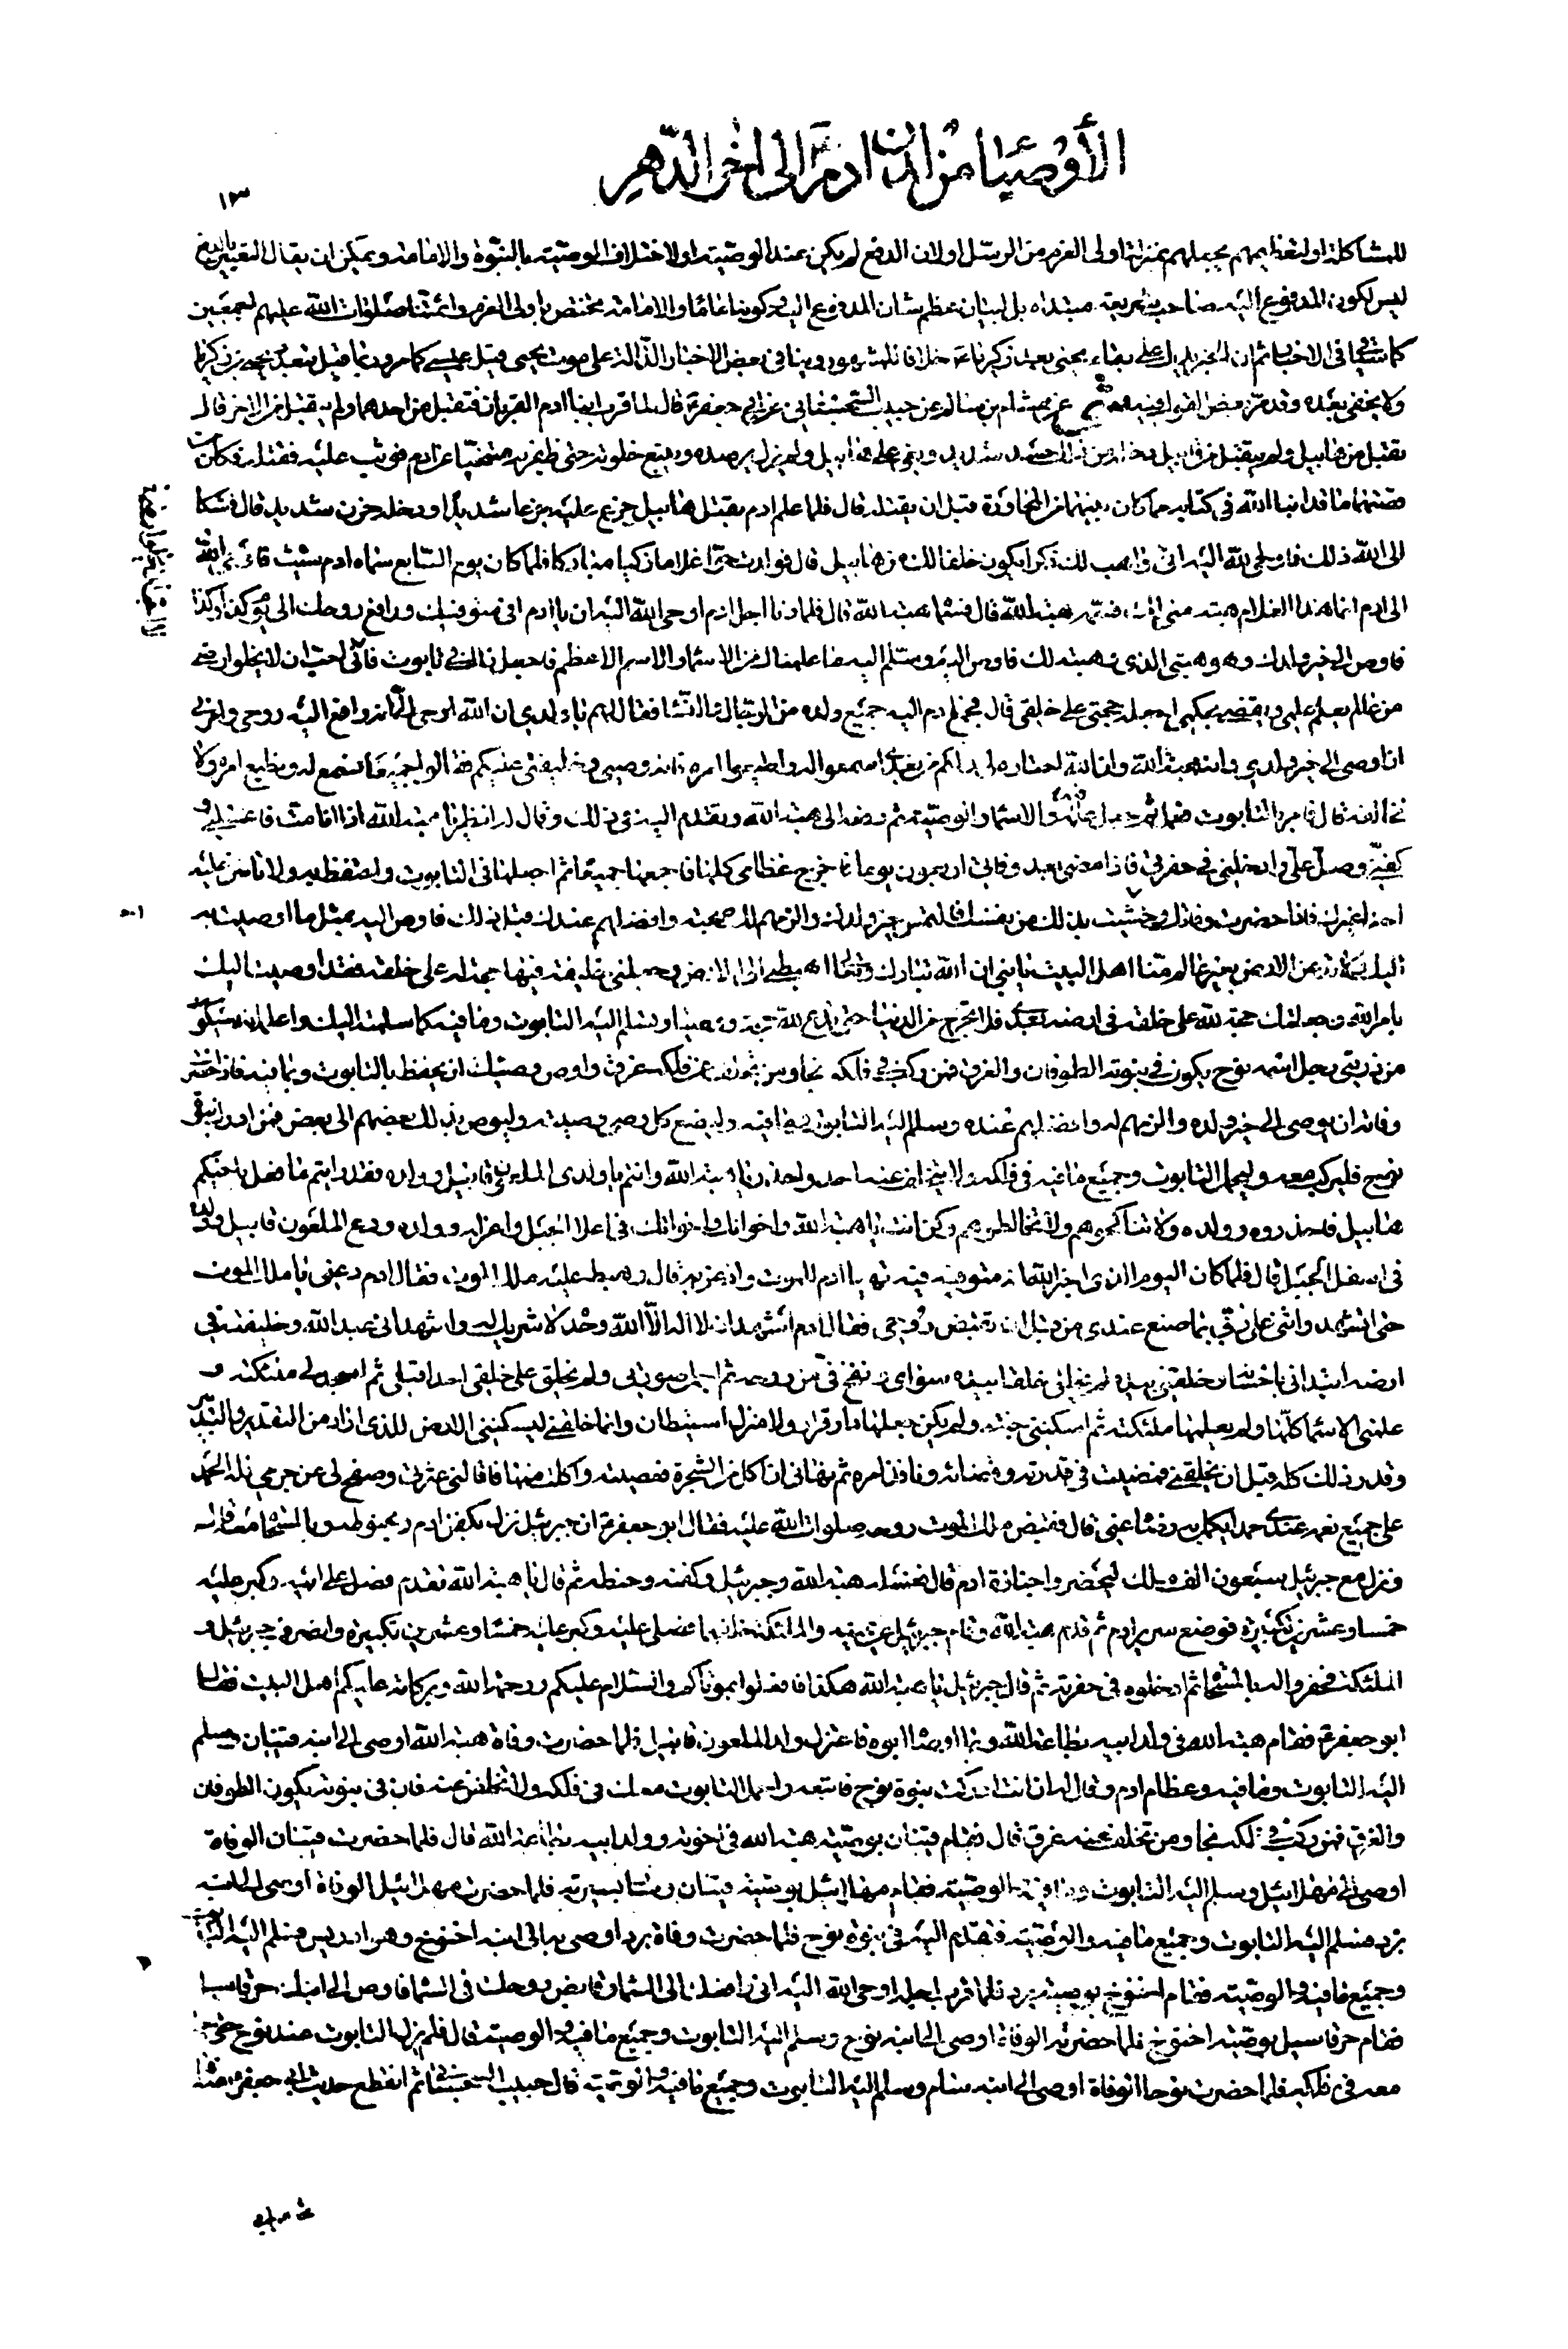 الأوصياء من لدن آدم الى اخر الدهر
١٣
للمشاكلة او لتعظيمهم بجعلهم بمنزلة اولى العزم من الرسل او لان الدفع لم يكن عند الوصية او لاختلاف الوصية بالنبوة والامامة ويمكن ان يقال التعبير بالدفع
ليس لكون المدفوع اليه صاحب شريعة مبتداه بل لبيان عظم شان المدفوع اليه وكونها عاما والامامة مختص باولى العزم وائمتنا صلوات الله عليهم اجمعين
كما سياتى فى الاخبار ثم ان الخبر يدل على بقاء يحيى بعد زكريا ع خلافا للمشهور وينافى بعض الاخبار الدالة على موت يحيى قبل عيسى كما مر وربما قيل بتعدد يحيى بن زكريا
ولا يخفى بعده وقد مر بعض القول فيه عن هشام بن سالم عن حبيب السجستانى عن ابى جعفر ع قال لما قرب ابنا ادم القربان فتقبل من احدهما ولم يتقبل من الاخر قال
تقبل من هابيل ولم يتقبل من قابيل دخله من ذلك حسد شديد وبغى على هابيل ولم يزل يرصده ويتبع خلوته حتى ظفر به متنحيا عن ادم فوثب عليه فقتله فكان من
قصتهما ما قد انبا الله فى كتابه مما كان بينهما من المحاورة قبل ان يقتله قال فلما علم ادم بقتل هابيل جزع عليه جزعا شديدا ودخله حزن شديد قال فشكا
الى الله ذلك فاوحى الله اليه انى واهب لك ذكرا يكون خلفا لك من هابيل قال فولدت حوا غلاما زكيا مباركا فلما كان يوم السابع سماه ادم شيث فاوحى الله
الى ادم انما هذا الغلام هبة منى اليك فسمه هبة الله قال فسماه هبة الله قال فلما دنا اجل ادم اوحى الله اليه ان يا ادم انى متوفيك ورافع روحك الى يوم كذا وكذا
فاوص الى خير ولدك وهو هبتى الذى وهبته لك فاوص اليه وسلم اليه ما علمناك من الاسماء والاسم الاعظم فاجعل ذلك فى تابوت فانى احب ان لا يخلو ارضى
من عالم يعلم علمى ويقضى بحكمى اجعله حجتى على خلقى قال فجمع ادم اليه جميع ولده من الرجال والنساء فقال لهم يا ولدى ان الله اوحى الى انه رافع اليه روحى وامرنى
ان اوصى الى خير ولدى وانه هبة الله وان الله اختاره لى ولكم من بعدى اسمعوا له واطيعوا امره فانه وصيى وخليفتى عليكم فقالوا جميعا نسمع له ونطيع امره ولا
نخالفه قال فامر بالتابوت فعمل ثم جعل فيه علمه والاسماء والوصية ثم دفعه الى هبة الله وتقدم اليه فى ذلك وقال له انظر يا هبة الله اذا انا مت فاغسلنى و
كفنى وصل على وادخلنى فى حفرتى فاذا مضى بعد وفاتى اربعون يوما فاخرج عظامى كلها فاجمعها جميعا ثم اجعلها فى التابوت واحتفظ به ولا تامنن عليه
احدا غيرك فاذا حضرت وفاتك وخشيت بذلك من نفسك فالتمس خير ولدك والزمهم لك صحبة وافضلهم عندك قبل ذلك فاوص اليه بمثل ما اوصيت به
اليك ولا تدعن الارض بغير عالم منا اهل البيت يا بنى ان الله تبارك وتعالى اهبطنى الى الارض وجعلنى خليفة فيها حجة له على خلقه فقد اوصيت اليك
بامر الله وجعلتك حجة لله على خلقه فى ارضه بعدى فلا تخرج من الدنيا حتى تدع لله حجة ووصيا وتسلم اليه التابوت وما فيه كما سلمته اليك واعلمه انه سيكون
من ذريتى رجل اسمه نوح يكون فى نبوته الطوفان والغرق فمن ركب فى فلكه نجا ومن تخلف عن فلكه غرق واوص وصيك ان يحفظ بالتابوت وبما فيه فاذا حضرت
وفاته ان يوصى الى خير ولده والزمهم له وافضلهم عنده وسلم اليه التابوت وما فيه وليضع كل وصى وصيته وليوص بذلك بعضهم الى بعض فمن ادرك نبوة
نوح فليركب معه وليحمل التابوت وجميع ما فيه فى فلكه ولا يتخلف عنه احد واحذر يا هبة الله وانتم يا ولدى الملعون قابيل وولده فقد رايتم ما فعل باخيكم
هابيل فاحذروه وولده ولا تناكحوهم ولا تخالطوهم وكن انت يا هبة الله واخوتك واخواتك فى اعلا الجبل واعزله وولده ودع الملعون قابيل وولده
فى اسفل الجبل قال فلما كان اليوم الذى اخبر الله انه متوفيه فيه تهيا ادم للموت واذعن به قال وهبط عليه ملك الموت فقال ادم دعنى يا ملك الموت
حتى اتشهد واثنى على ربى بما صنع عندى من قبل ان تقبض روحى فقال ادم اشهد ان لا اله الا الله وحده لا شريك له واشهد انى عبد الله وخليفته فى
ارضه ابتدانى باحسانه وخلقنى بيده لم يخلق خلقا بيده سواى ونفخ فى من روحه ثم اجمل صورتى ولم يخلق على خلقى احدا قبلى ثم اسجد لى ملئكته و
علمنى الاسماء كلها ولم يعلمها ملئكته ثم اسكننى جنته ولم يكن جعلها دار قرار ولا منزل استيطان وانما خلقنى ليسكننى الارض للذى اراد من التقدير والتدبير
وقدر ذلك كله قبل ان يخلقنى فمضيت فى قدرته وقضائه ونافذ امره ثم نهانى ان اكل من الشجرة فعصيته واكلت منها فاقالنى عثرتى وصفح لى عن جرمى فله الحمد
على جميع نعمه عندى حمدا يكمل به رضاه عنى قال فقبض ملك الموت روحه صلوات الله عليه فقال ابو جعفر ع ان جبرئيل نزل بكفن ادم وبحنوطه وبالمسحاة معه قال
ونزل مع جبرئيل سبعون الف ملك ليحضروا جنازة ادم قال فغسله هبة الله وجبرئيل وكفنه وحنطه ثم قال يا هبة الله تقدم فصل على ابيك وكبر عليه
خمسا وعشرين تكبيرة فوضع سرير ادم ثم قدم هبة الله وقام جبرئيل عن يمينه والملئكة خلفهما فصلى عليه وكبر عليه خمسا وعشرين تكبيرة وانصرف جبرئيل و
الملئكة فحفروا له بالمسحاة ثم ادخلوه فى حفرته ثم قال جبرئيل يا هبة الله هكذا فافعلوا بموتاكم والسلام عليكم ورحمة الله وبركاته عليكم اهل البيت فقال
ابو جعفر ع فقام هبة الله فى ولد ابيه بطاعة الله وبما اوصاه ابوه فاعتزل ولد الملعون قابيل فلما حضرت وفاة هبة الله اوصى الى ابنه قينان وسلم
اليه التابوت وما فيه وعظام ادم وقال له ان انت ادركت نبوة نوح فاتبعه واحمل التابوت معك فى فلكه ولا تخلفن عنه فان فى نبوته يكون الطوفان
والغرق فمن ركب فى فلكه نجا ومن تخلف عنه غرق قال فقام قينان بوصية هبة الله فى اخوته وولد ابيه بطاعة الله قال فلما حضرت قينان الوفاة
اوصى الى مهلائيل وسلم اليه التابوت وما فيه والوصية فقام مهلائيل بوصية قينان وسار بسيرته فلما حضرت مهلائيل الوفاة اوصى الى ابنه
يرد فسلم اليه التابوت وجميع ما فيه والوصية فتقدم اليه فى نبوة نوح فلما حضرت وفاة يرد اوصى به الى ابنه اخنوخ وهو ادريس فسلم اليه التابوت
وجميع ما فيه والوصية فقام اخنوخ بوصية يرد فلما قرب اجله اوحى الله اليه انى رافعك الى السماء وقابض روحك فى السماء فاوص الى ابنك حرقاسيل
فقام حرقاسيل بوصية اخنوخ فلما حضرته الوفاة اوصى الى ابنه نوح وسلم اليه التابوت وجميع ما فيه والوصية قال فلم يزل التابوت عند نوح حتى حمله
معه فى فلكه فلما حضرت نوحا الوفاة اوصى الى ابنه سام وسلم اليه التابوت وجميع ما فيه والوصية قال حبيب السجستانى ثم انقطع حديث ابى جعفر ع